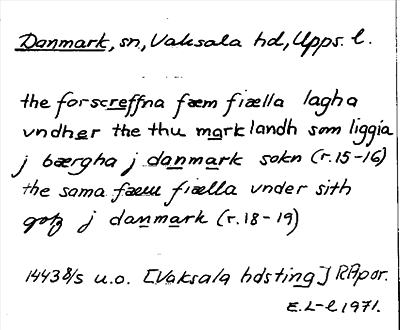 Danmark, sn, Vaksala hd, Upps. l.
the forscreffna fæm fiælla lagha
vndher the thu marklandh som liggia
j bærgha j danmark sokn (r. 15-16)
the sama fæm fiælla vnder sith
gotz j danmark (r. 18-19)
1443 8/5 u.o. [Vaksala hdsting] RApor.
E. L-l 1971.